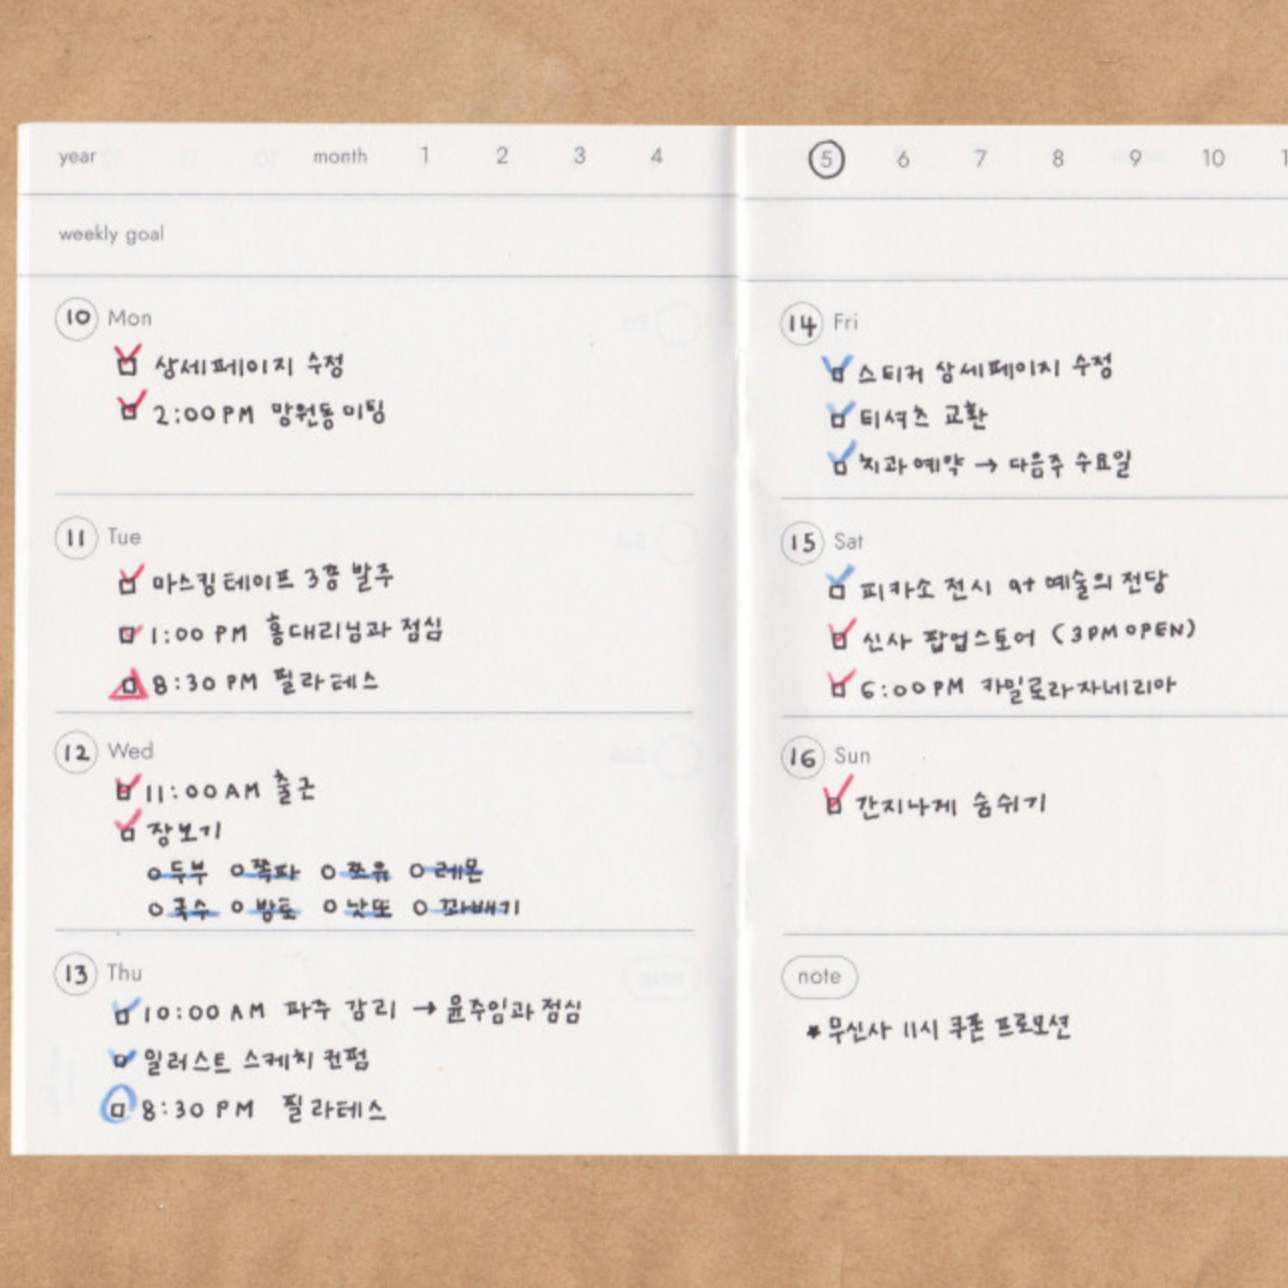 year month 1 2 3 4
5 6 7 8 9 10
weekly goal
10 Mon
상세페이지 수정
2:00 PM 망원동 미팅
11 Tue
마스킹 테이프 3종 발주
1:00 PM 홍대리님과 점심
8:30 PM 필라테스
12 Wed
11:00 AM 출근
장보기
두부 쪽파 쯔유 레몬
국수 방토 낫또 꽈배기
13 Thu
10:00 AM 파주 감리 → 윤주임과 점심
일러스트 스케치 컨펌
8:30 PM 필라테스
14 Fri
스티커 상세페이지 수정
티셔츠 교환
치과 예약 → 다음주 수요일
15 Sat
피카소 전시 at 예술의 전당
신사 팝업스토어 (3PM OPEN)
6:00 PM 카밀로라자네리아
16 Sun
간지나게 숨쉬기
note
* 무신사 11시 쿠폰 프로모션